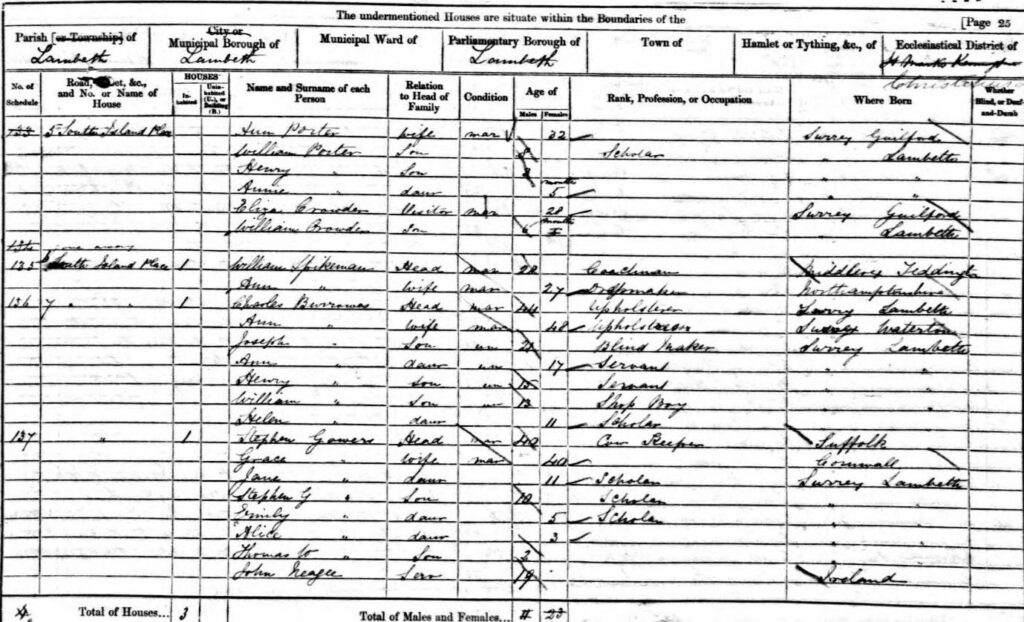 The undermentioned Houses are situate within the Boundaries of the
[Page 25
Parish [or Township] of
Lambeth
City or
Municipal Borough of
Lambeth
Municipal Ward of
Parliamentary Borough of
Lambeth
Town of
Hamlet or Tything, &c., of
Ecclesiastical District of
St Marks
No. of Schedule
Road, &c., and No. or Name of House
HOUSES
Inhabited
Uninhabited (U.), or Building (B.)
Name and Surname of each Person
Relation to Head of Family
Condition
Age of
Males
Females
Rank, Profession, or Occupation
Where Born
Whether Blind, or Deaf-and-Dumb
133 5 South Island Place Ann Porter Wife mar 32 Surrey Guilford
William Porter Son 8 Scholar " Lambeth
Henry " Son " "
Annie " daur 5 months " "
Eliza Crowden Visitor mar 28 Surrey Guilford
William Crowden Son months Lambeth
134
135 6 South Island Place 1 William Spikeman Head mar 28 Coachman Middlesex Teddington
Ann " Wife mar 27 Dressmaker Northamptonshire
136 7 " " 1 Charles Burrows Head mar 44 Upholsterer Surrey Lambeth
Ann " Wife mar 48 Upholsterer Waterton
Joseph " Son un 21 Blind Maker Surrey Lambeth
Ann " daur un 17 Servant " "
Henry " Son un 15 Servant " "
William " Son un 13 Shop Boy " "
Helen " daur 11 Scholar " "
137 " 1 Stephen Gowers Head mar 42 Cow Keeper Suffolk
Grace " Wife mar 40 Cornwall
Jane " daur 11 Scholar Surrey Lambeth
Stephen G " Son 10 Scholar " "
Emily " daur 5 Scholar " "
Alice " daur 3 " "
Thomas W " Son 2 " "
John Neagle Serv 19 Ireland
Total of Houses... 3
Total of Males and Females...